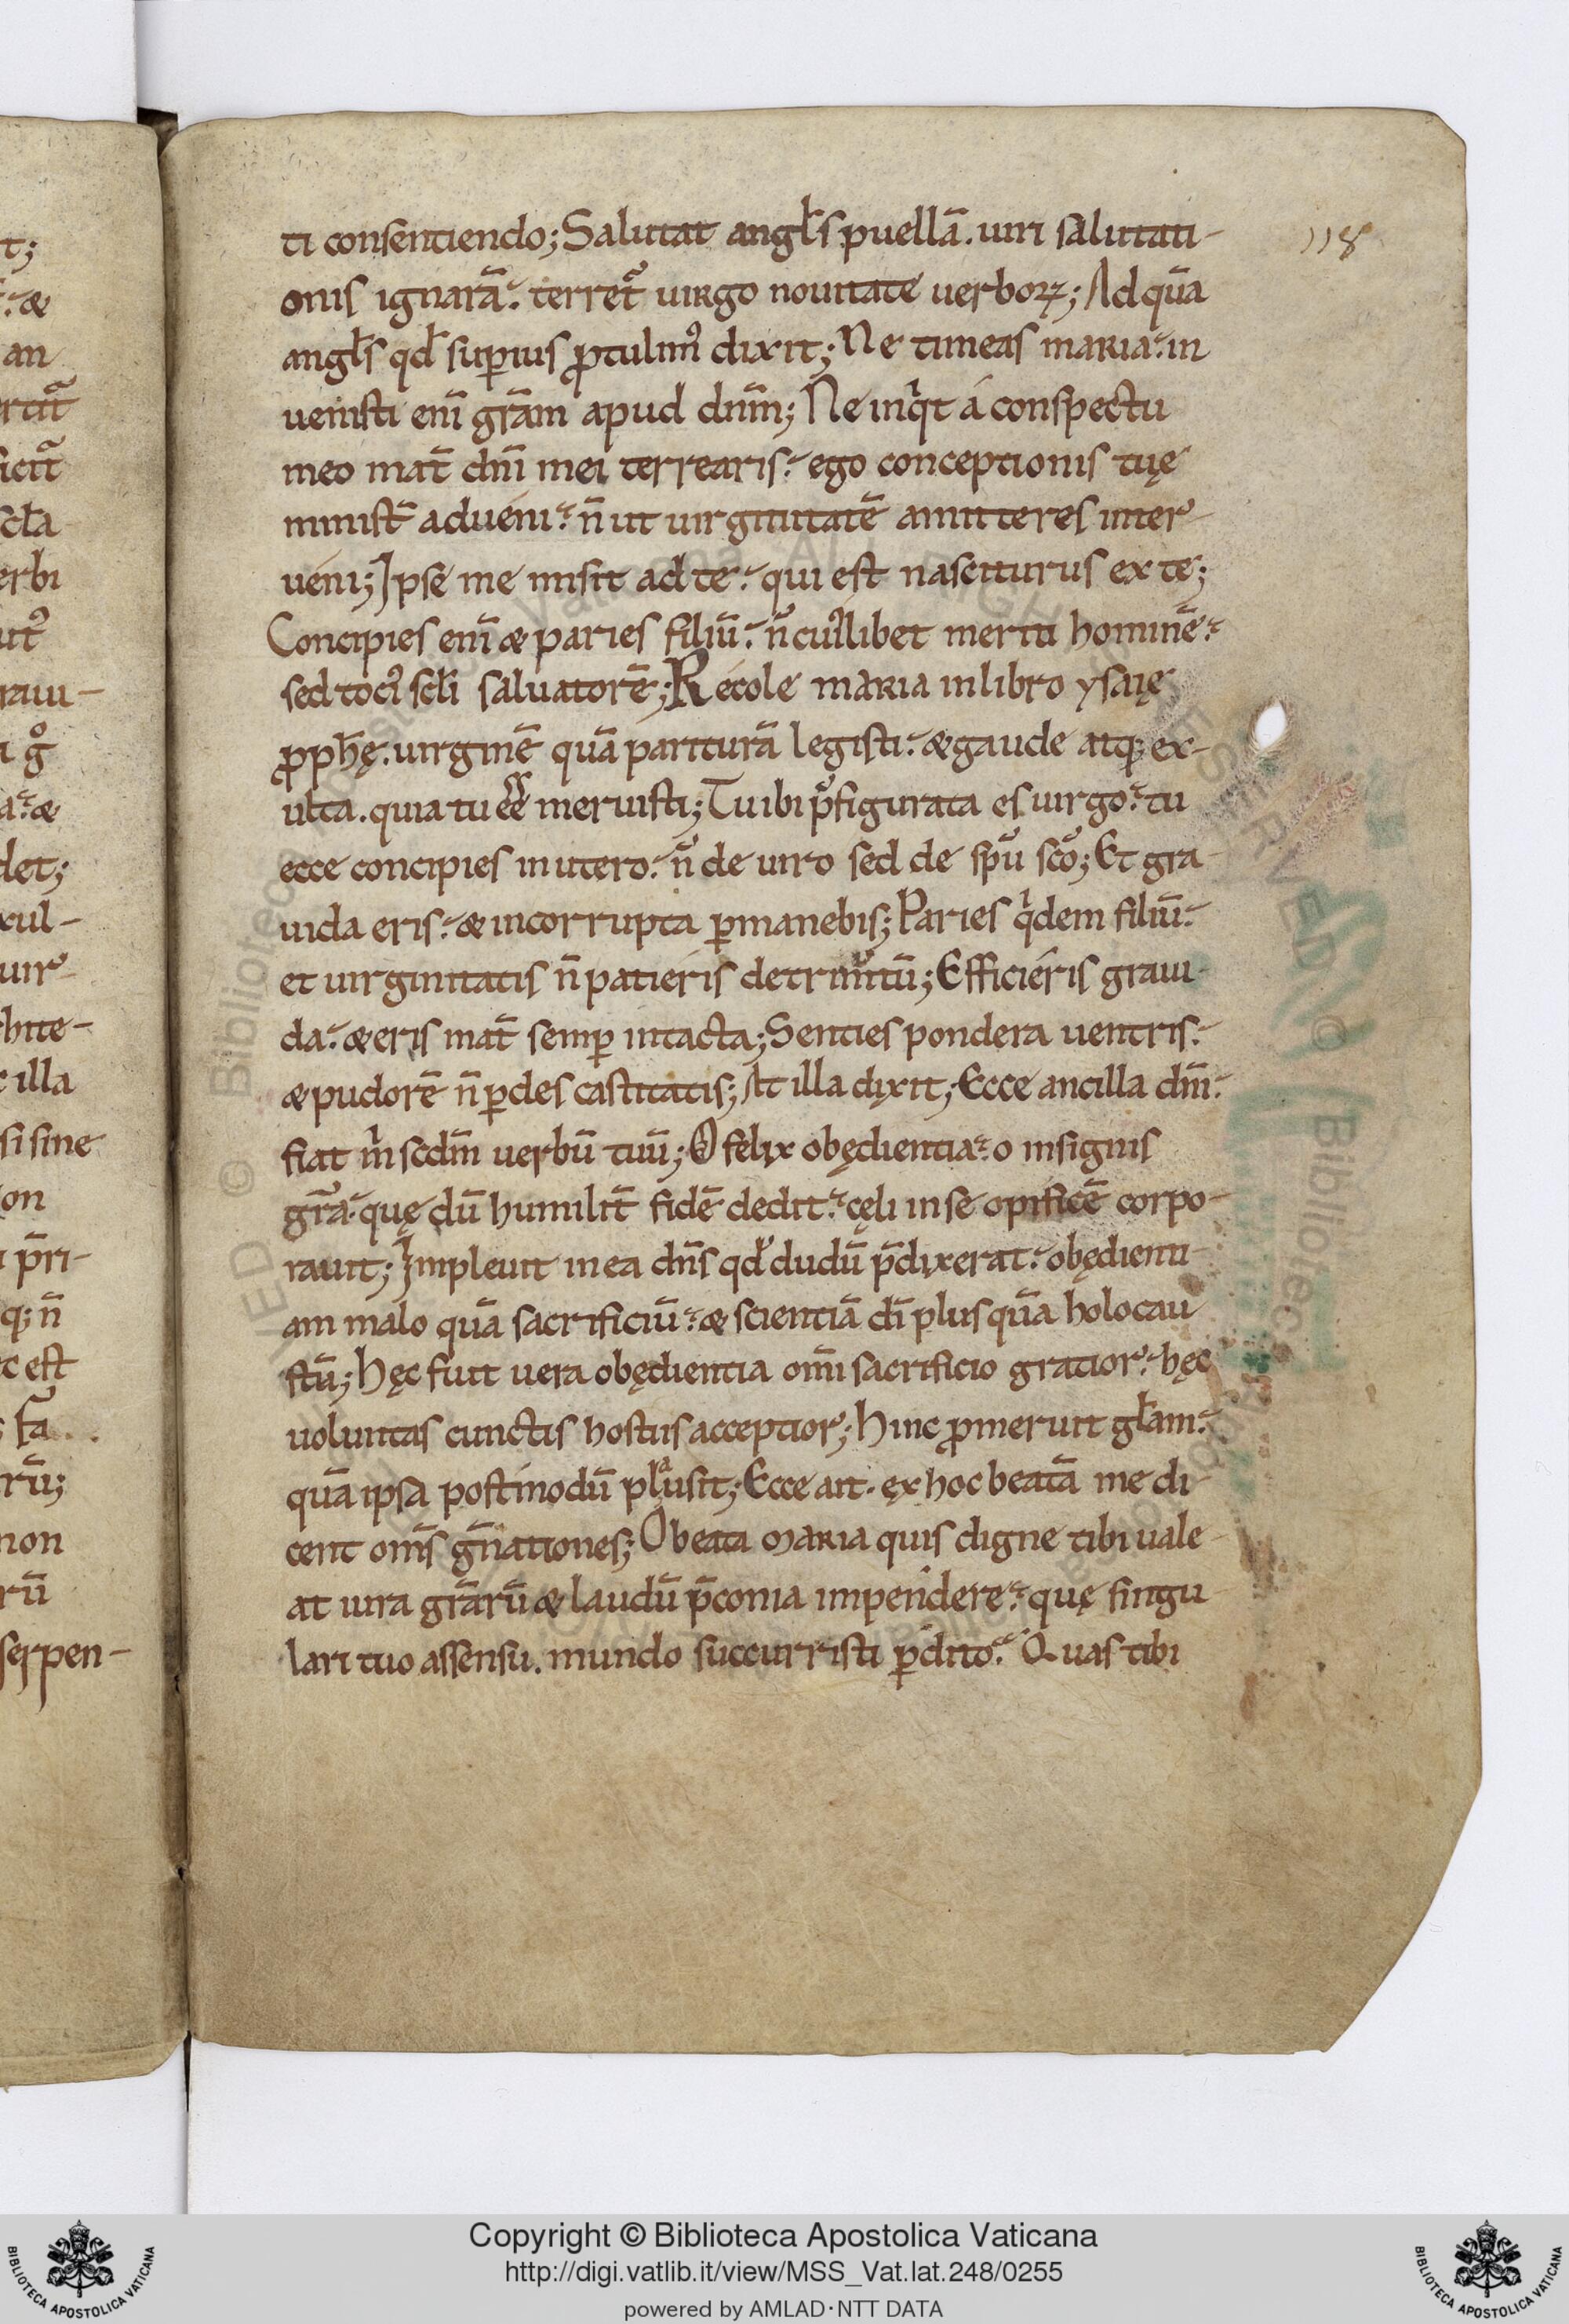 ti consentiendo; Salutat angl̄s puellā. uiri salutati-
onis ignarā. terret᷑ uirgo nouitate uerboꝝ; Ad quā
angl̄s qd̄ sup̱ius ꝓtulimꝰ dixit; Ne timeas maria. in
uenisti enī grām apud dnm̄; Ne inqͥt á conspectu
meo mat̄ dnī mei terrearis. ego conceptionis tuę
minist̄ adueni. n̄ ut uirginitatē amitteres inter-
ueni; Ipse me misit ad te. qui est nasciturus ex te;
Concipies enī & paries filiū. n̄ cuilibet meritu hominē.
sed tociꝰ scl̄i saluatorē; Recole maria in libro ysaię
ꝓph̄ę. uirginē quā pariturā legisti. & gaude atq; ex-
ulta. quia tu eē meruisti; Tu ibi p̄figurata es uirgo. tu
ecce concipies in utero. n̄ de uiro sed de spū scō; Et gra-
uida eris. & incorrupta ꝑmanebis; Paries qͥdem filiū.
et uirginitatis n̄ patieris detrim̄tū; Efficieris graui-
da. & eris mat̄ semꝑ intacta; Senties pondera uentris.
& pudorē n̄ ꝑdes castitatis; At illa dixit; Ecce ancilla dnī.
fiat mͥ scdm̄ uerbū tuū; O felix obędientia. o insignis
grā. quę dū humilit̄ fidē dedit. cęli in se opificē corpo-
rauit; Impleuit in ea dn̄s qd̄ dudū p̄dixerat. obędienti-
am malo quā sacrificiū. & scientiā dī plus quā holocau
stū; Hęc fuit uera obędientia om̄i sacrificio gratior. hęc
uoluntas cunctis hostiis acceptior; Hinc ꝓmeruit gl̄am.
quā ipsa postmodū plausit; Ecce ait. ex hoc beatā me di-
cent om̄s gn̄ationes; O beata maria quis digne tibi uale-
at iura grārū & laudū p̄conia impendere. quę singu
lari tuo assensu. mundo succurristi ꝑdito. Quas tibi
118
t;
& 
an
erbi
raui-
det;
xul-
uir-
illa
si sine
on
p̄ri-
q; n̄
c est
rū;
non
rū
serpen-
Copyright © Biblioteca Apostolica Vaticana
http://digi.vatlib.it/view/MSS_Vat.lat.248/0255
powered by AMLAD·NTT DATA
BIBLIOTECA APOSTOLICA VATICANA
BIBLIOTECA APOSTOLICA VATICANA